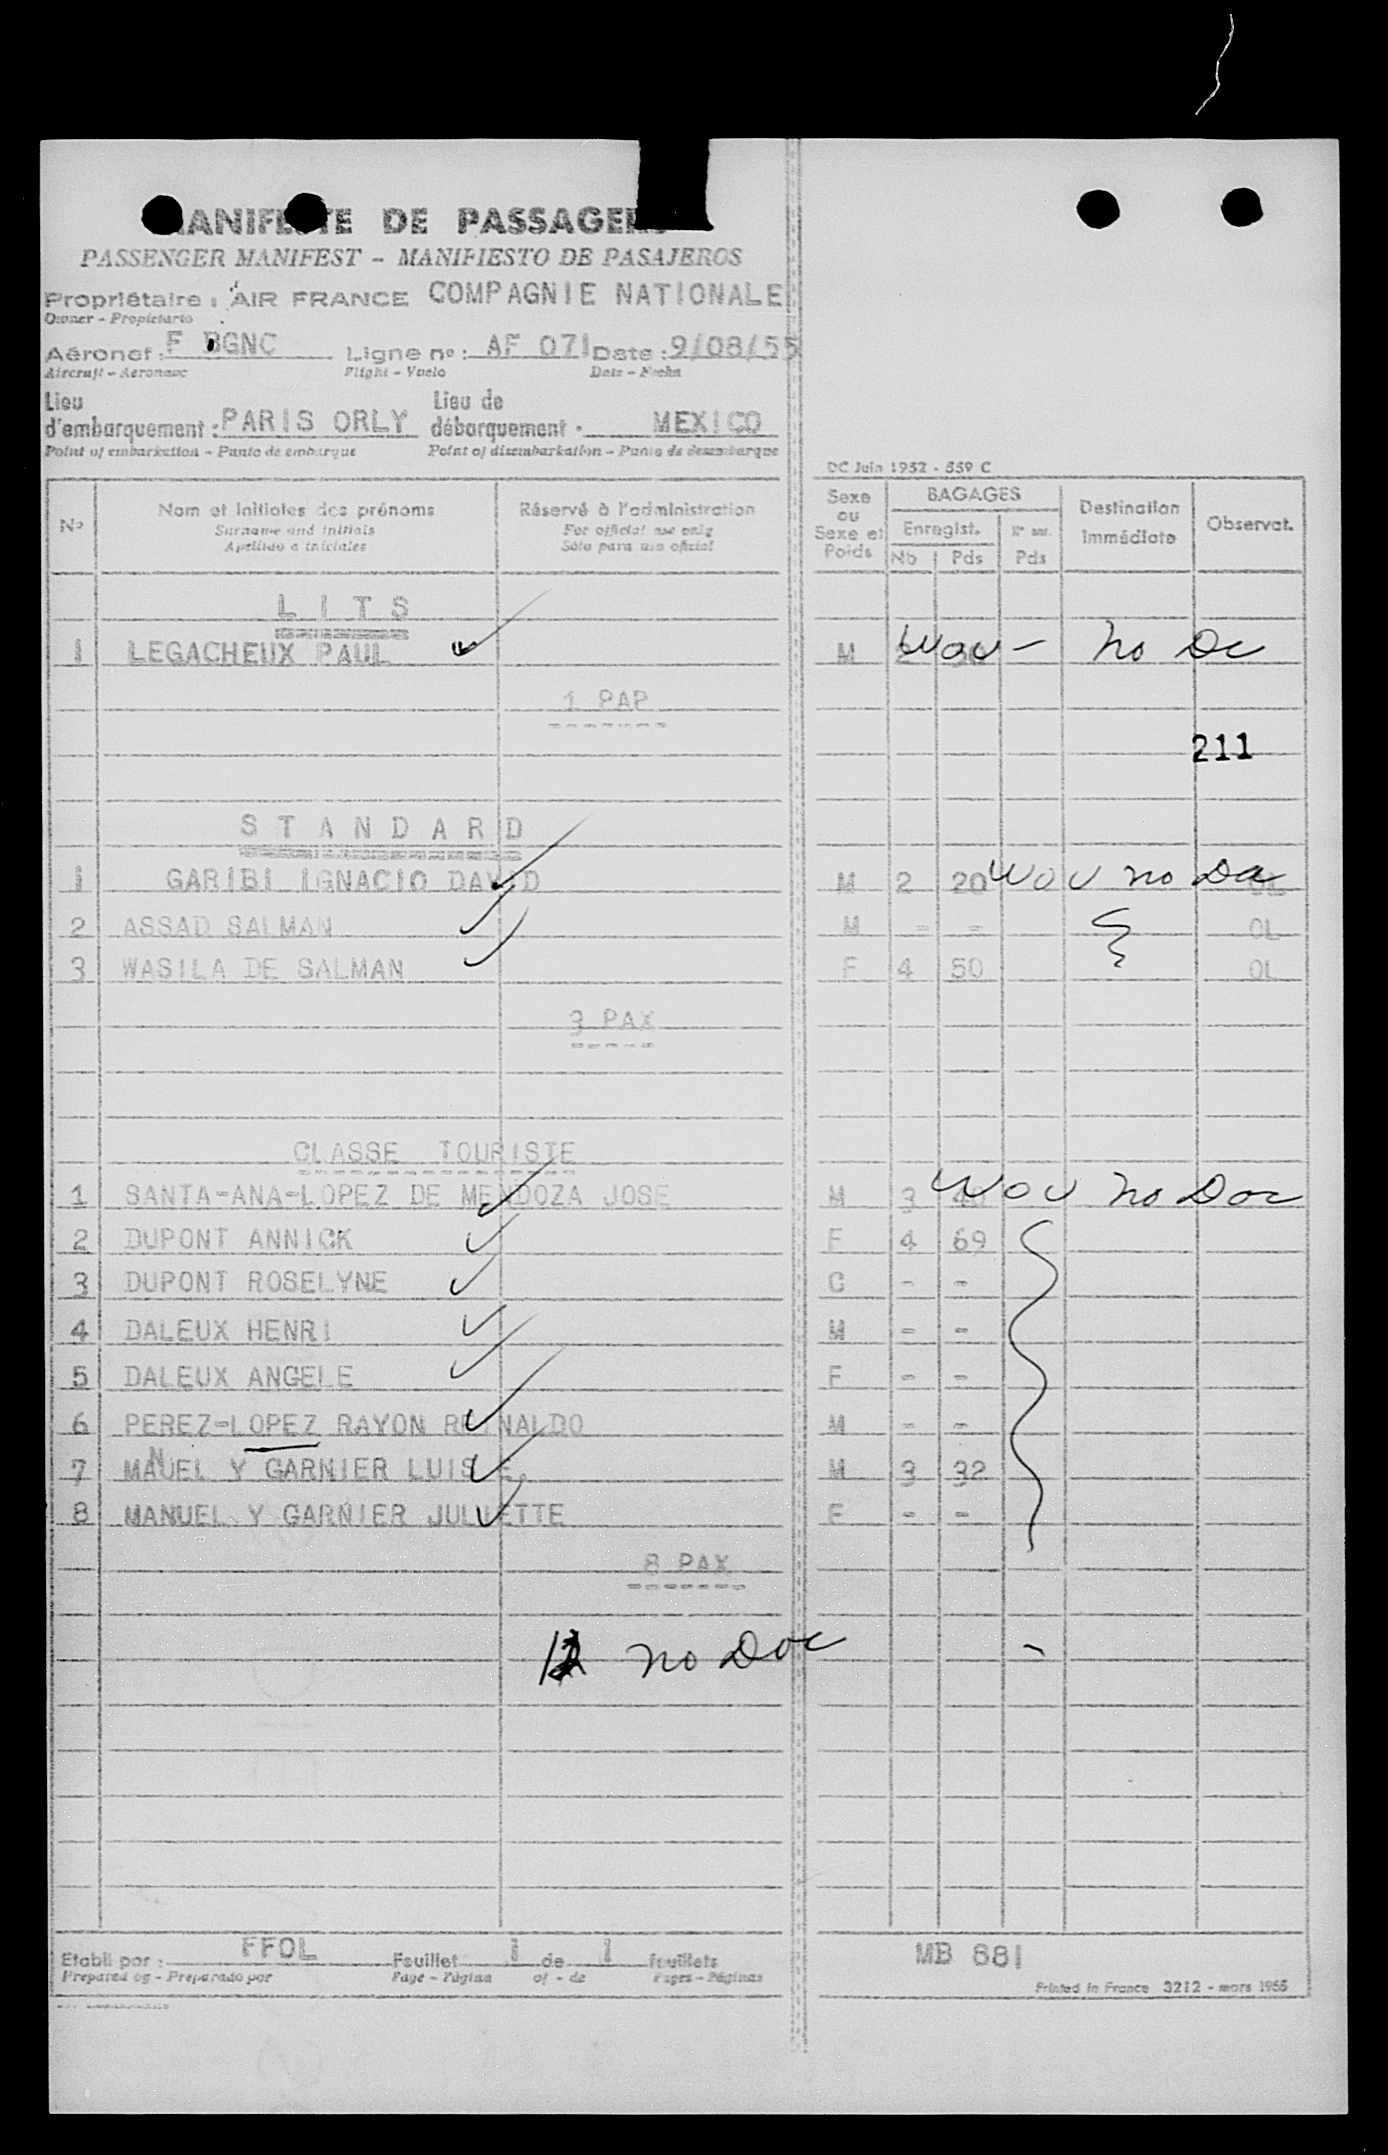 MANIFESTE DE PASSAGERS
PASSENGER MANIFEST - MANIFIESTO DE PASAJEROS
Propriétaire : AIR FRANCE COMPAGNIE NATIONALE
Owner - Propietario
Aéronef : F BGNC Ligne nº : AF 071 Date : 9/08/55
Aircraft - Aeronave Flight - Vuelo Date - Fecha
Lieu d'embarquement : PARIS ORLY Lieu de débarquement : MEXICO
Point of embarkation - Punto de embarque Point of disembarkation - Punto de desembarque
DC Juin 1952 - 559 C
Nº Nom et initiales des prénoms Réservé à l'administration Sexe ou Sexe et Poids BAGAGES Destination Immédiate Observat.
Surname and initials For official use only Enregist.
Apellido e iniciales Sólo para uso oficial Nb Pds Pds
L I T S
1 LEGACHEUX PAUL M wou - no Dc
1 PAP
211
S T A N D A R D
1 GARIBI IGNACIO DAVID M 2 20 wou no Da OL
2 ASSAD SALMAN M - - OL
3 WASILA DE SALMAN F 4 50 OL
3 PAX
CLASSE TOURISTE
1 SANTA-ANA-LOPEZ DE MENDOZA JOSE M 3 wou no Doc
2 DUPONT ANNICK F 4 69
3 DUPONT ROSELYNE C - -
4 DALEUX HENRI M - -
5 DALEUX ANGELE F - -
6 PEREZ-LOPEZ RAYON REYNALDO M - -
7 MANUEL Y GARNIER LUIS E, M 3 32
8 MANUEL Y GARNIER JULIETTE F - -
8 PAX
12 no Doc -
Etabli par : FFOL Feuillet 1 de 1 feuillets MB 881
Prepared by - Preparado por Page - Página of - de Pages - Páginas
Printed in France 3212 - mars 1955